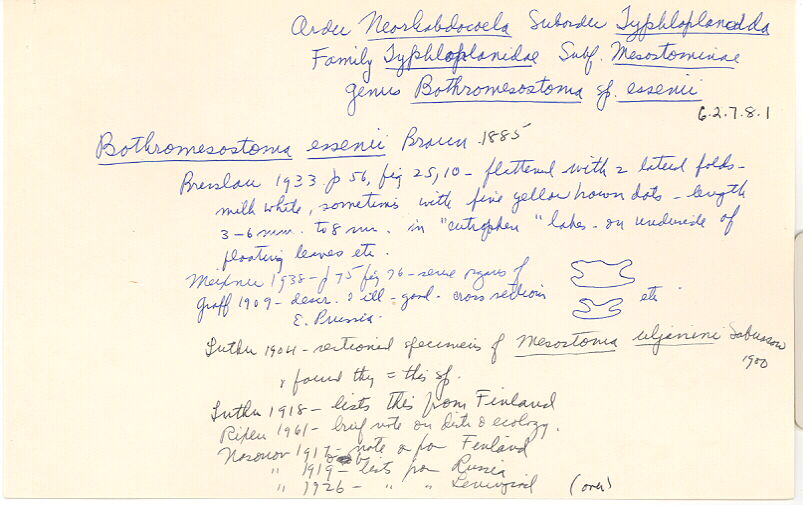 Order Neorhabdocoela Suborder Typhloplanodda
Family Typhloplanidae Subf. Mesostominae
genus Bothromesostoma sp. essenii
6.2.7.8.1
Bothromesostoma essenii Braun 1885
Bresslau 1933 p 56, fig 25, 10 - flattened with 2 lateral folds -
milk white, sometimes with fine yellow brown dots - length
3-6 mm. to 8 mm. in "eutrophen" lakes - on underside of
floating leaves etc.
Meixner 1938 - p 75 fig 76 - sense organs of
Graff 1909 - descr. & ill - good - cross sections etc
E. Prussia.
Luther 1904 - sectioned specimens of Mesostoma uljanini Sabussow
1900
& found they = this sp.
Luther 1918 - lists this from Finland
Rixen 1961 - brief note on distr & ecology.
Nasonov 1917 - note on for Finland
" 1919 - lists for Russia
" 1926 - " " Leningrad (over)